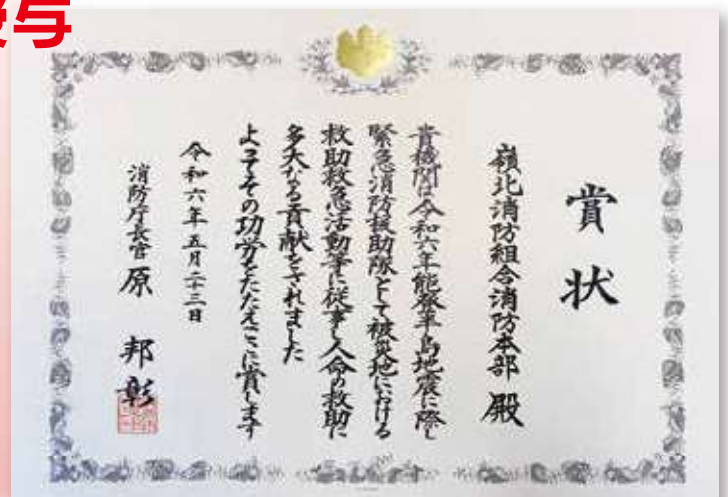 授与
賞状
嶺北消防組合消防本部 殿
貴機関は令和六年能登半島地震に際し
緊急消防援助隊として被災地における
救助救急活動等に従事し人命の救助に
多大なる貢献をされました
よってその功労をたたえここに賞します
令和六年五月二十三日
消防庁長官 原 邦彰